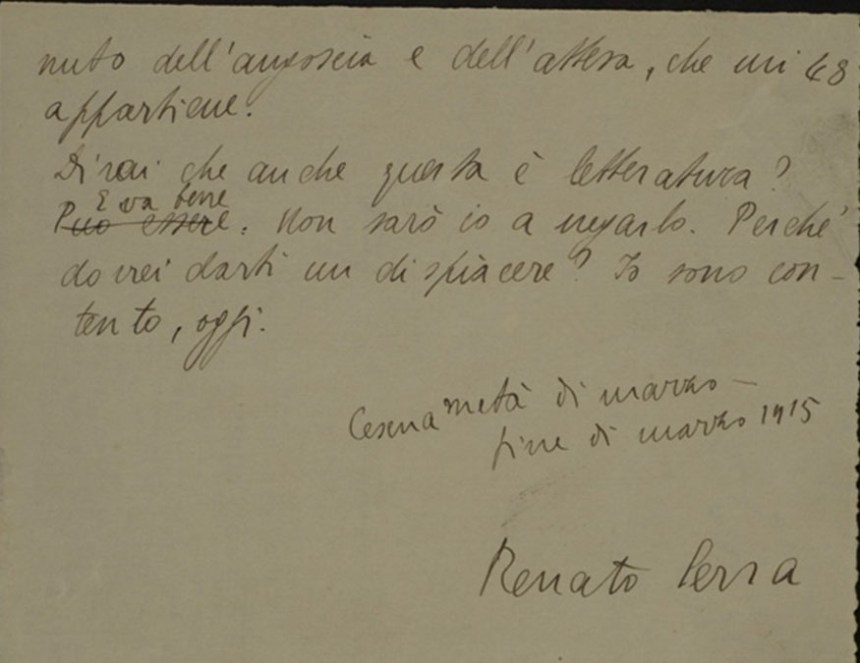 nuto dell'angoscia e dell'attesa, che mi 68
appartiene.
Dirai che anche questa è letteratura?
E va bene
Può essere. Non sarò io a negarlo. Perché
dovrei darti un dispiacere? Io sono con-
tento, oggi.
Cesena metà di marzo –
fine di marzo 1915
Renato Serra